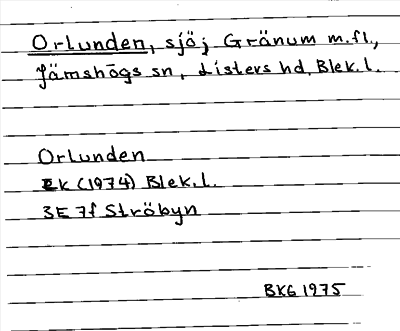 Orlunden, sjö; Gränum m.fl.,
Jämshögs sn, Listers hd, Blek.l.
Orlunden
EK (1974) Blek.l.
3E 7f Ströbyn
BKG 1975